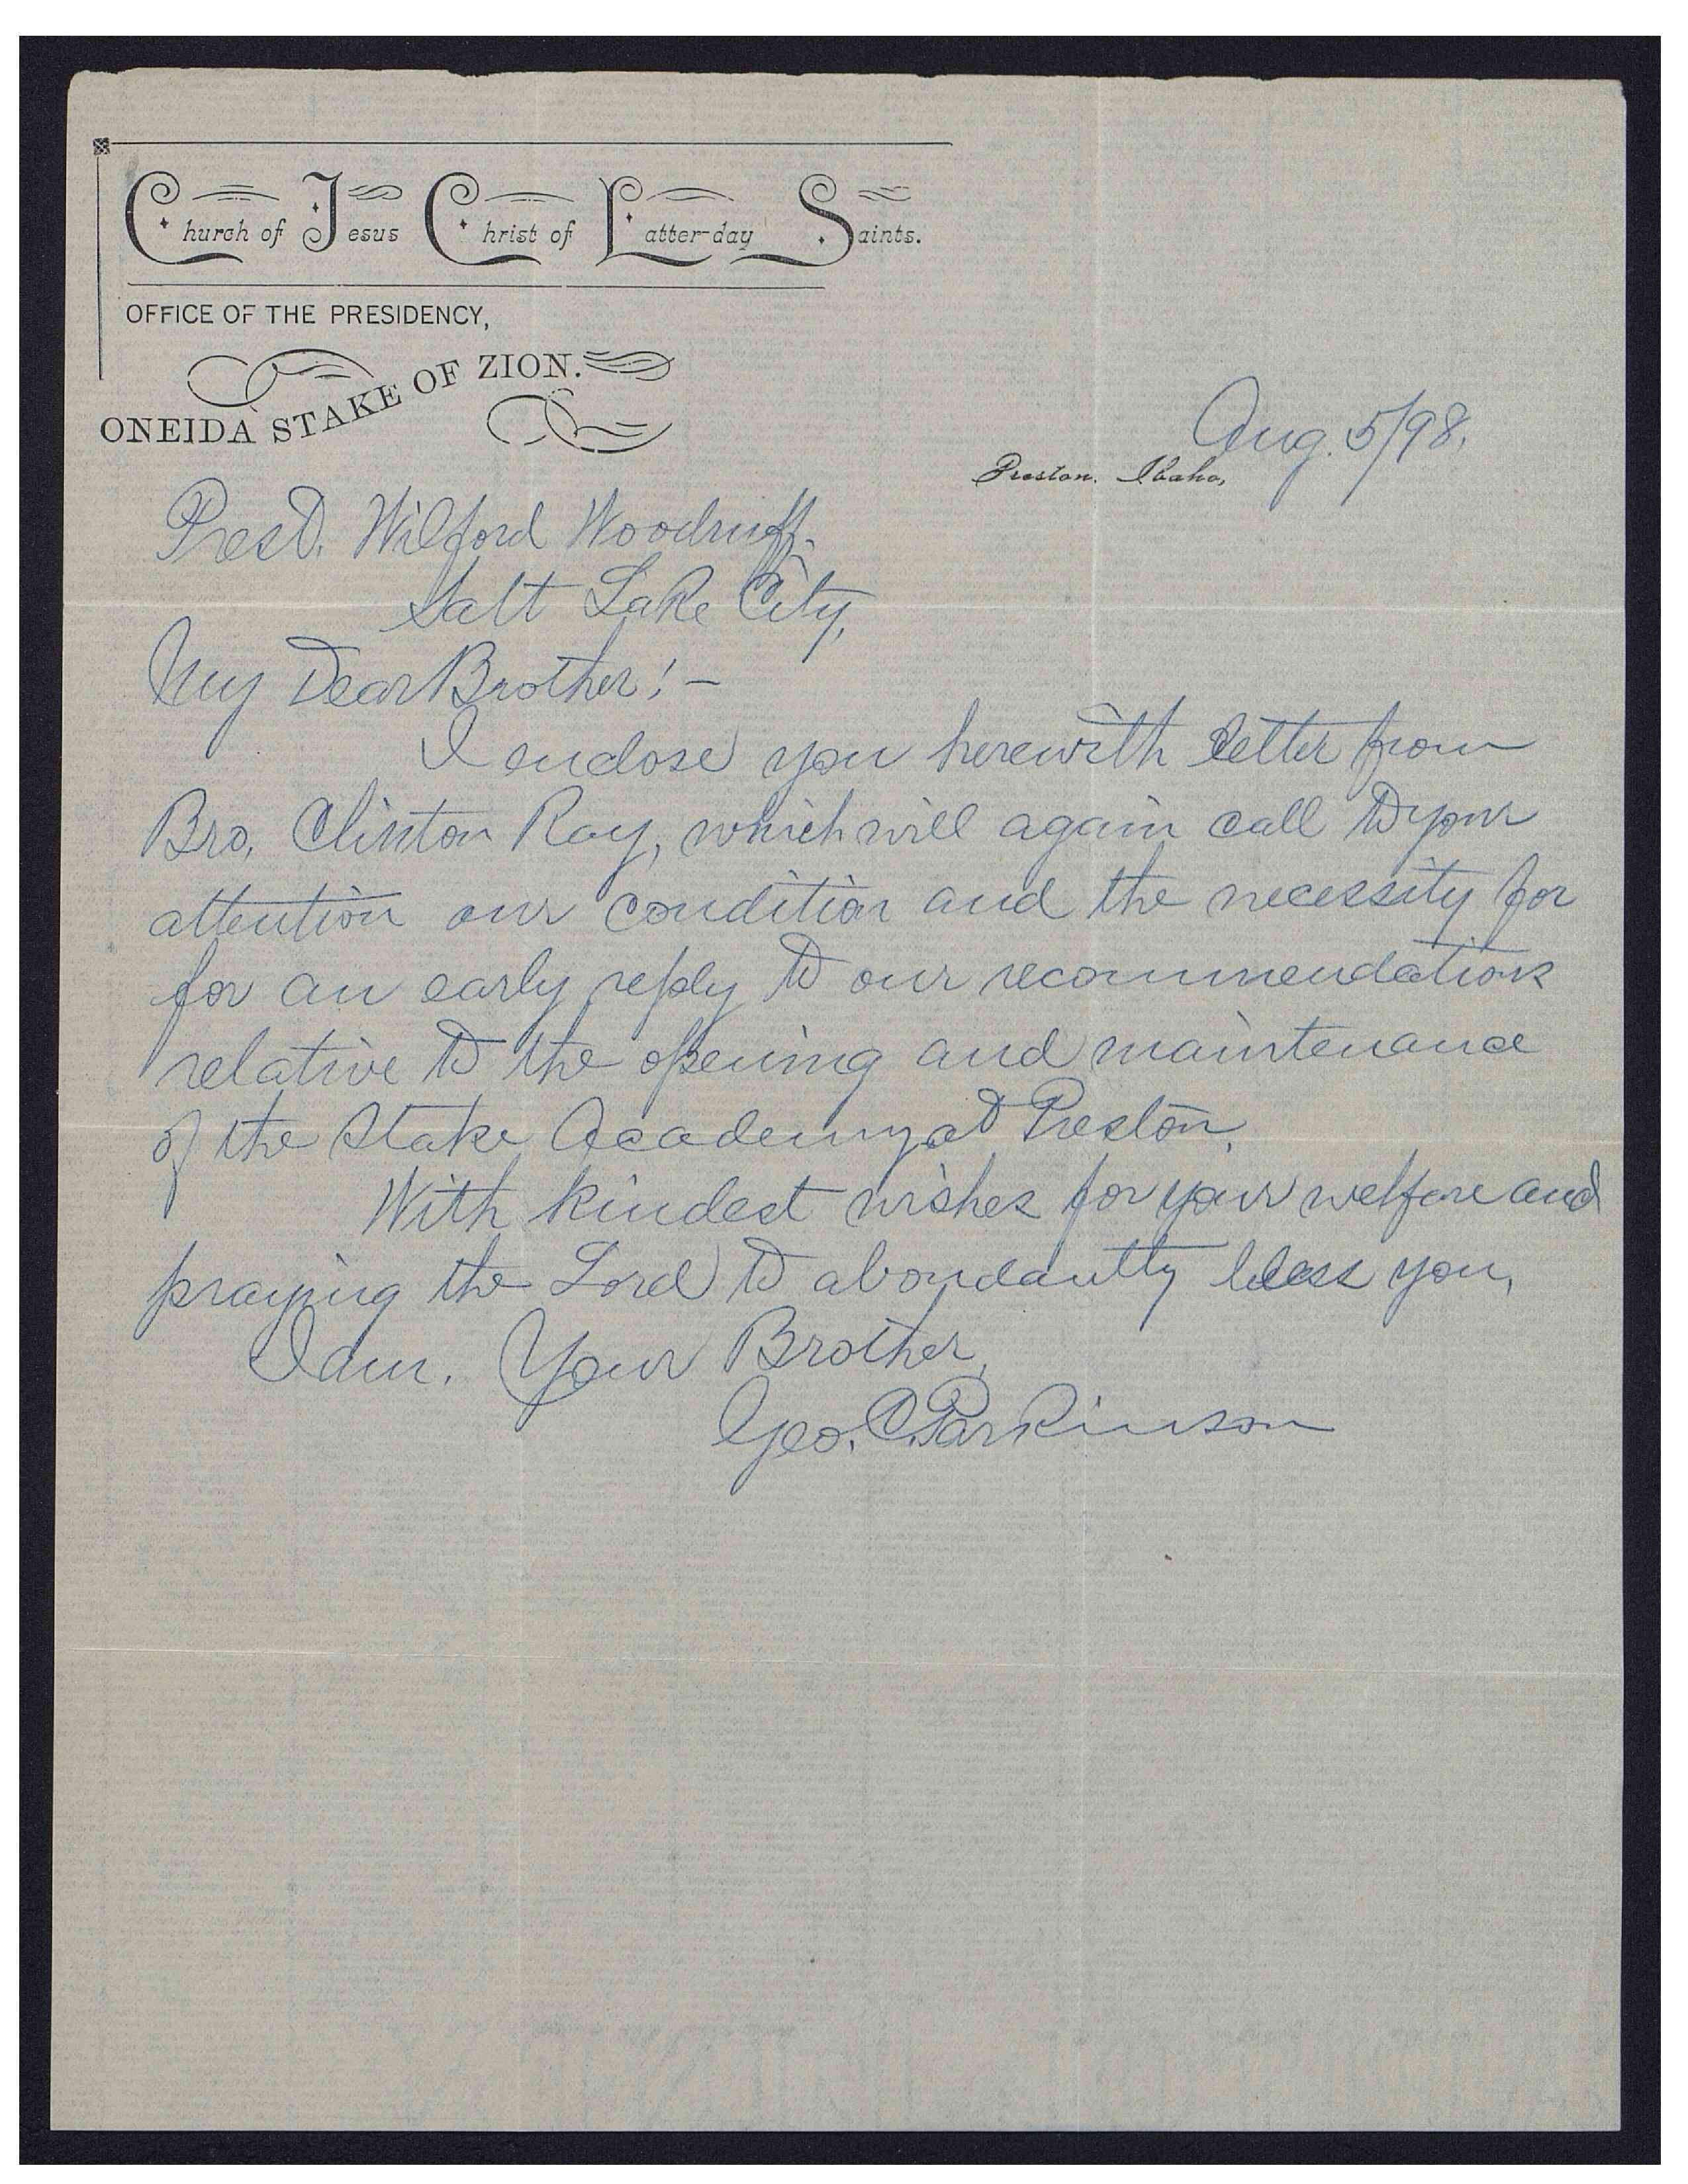 Church of Jesus Christ of Latter-day Saints.
OFFICE OF THE PRESIDENCY,
ONEIDA STAKE OF ZION.
Preston, Idaho, Aug. 5/98.
Prest. Wilford Woodruff.
Salt Lake City,
My Dear Brother! –
I enclose you herewith letter from
Bro. Clinton Ray, which will again call to your
attention our condition and the necessity for
for an early reply to our recommendations
relative to the opening and maintenance
of the Stake Academy at Preston.
With kindest wishes for your welfare and
praying the Lord to abondantly bless you,
I am. Your Brother,
Geo. C. Parkinson